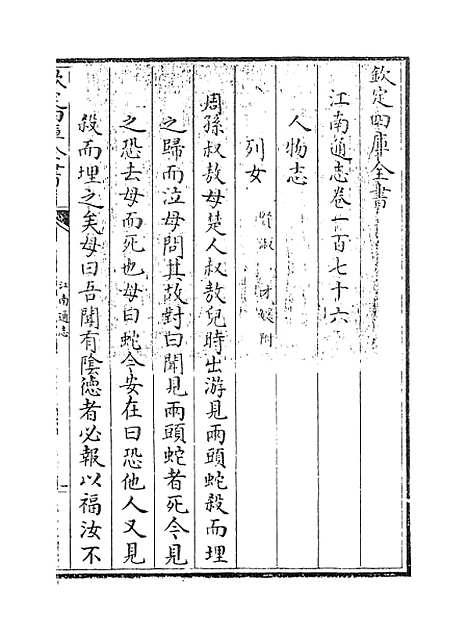 欽定四庫全書
江南通志卷一百七十六
人物志
列女 賢淑 才媛附
周孫叔敖母楚人叔敖兒時出游見兩頭蛇殺而埋
之歸而泣母問其故對曰聞見兩頭蛇者死今見
之恐去母而死也母曰蛇今安在曰恐他人又見
殺而埋之矣母曰吾聞有陰德者必報以福汝不
江南通志